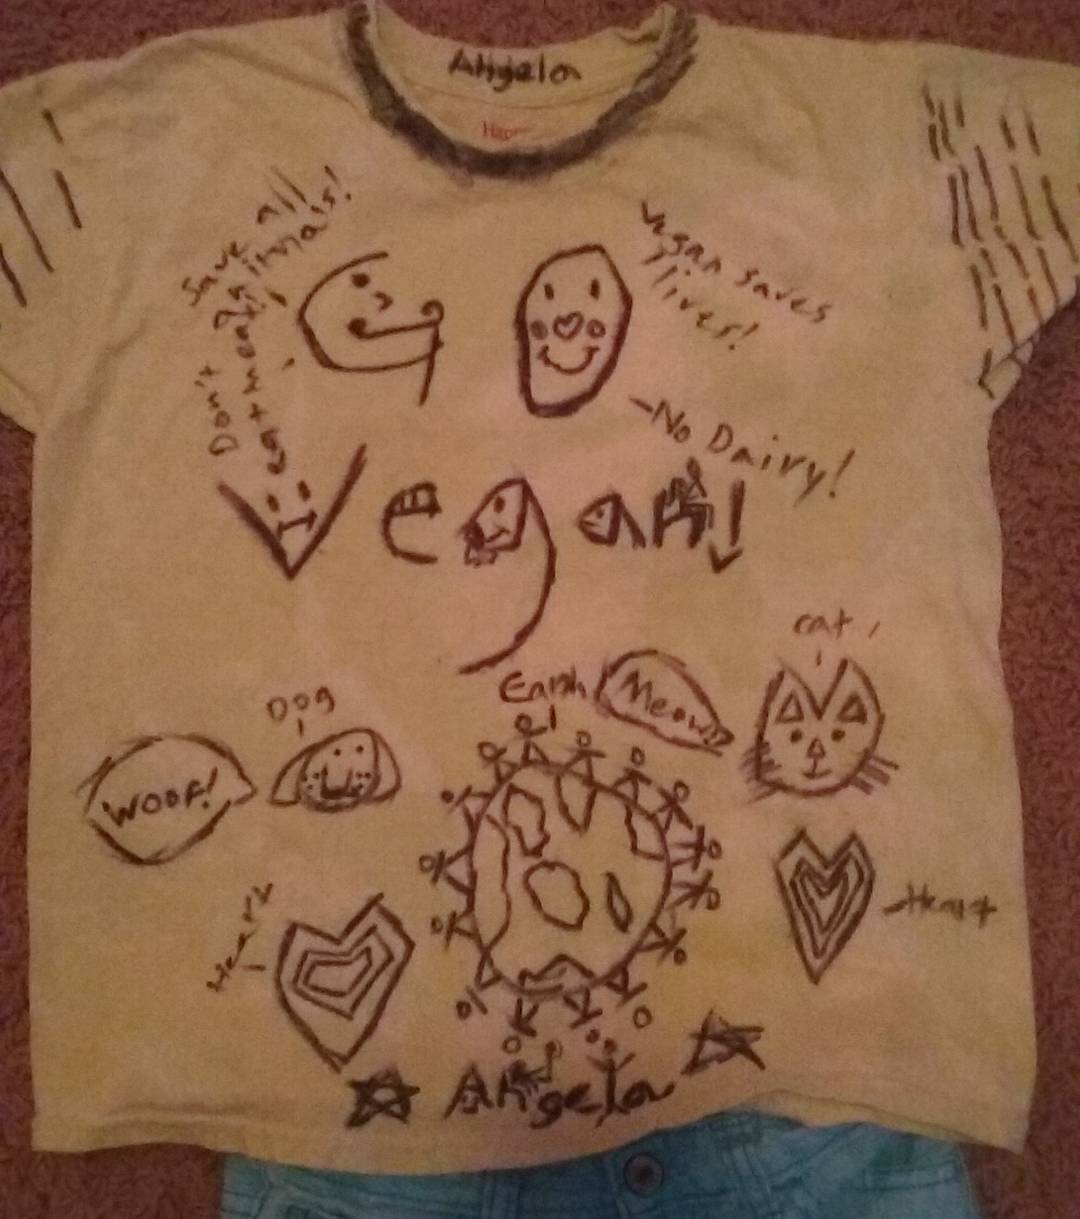 Angela
Save all
animals!
Don't
eat meat!
Vegan saves
lives!
GO
-No Dairy!
Vegan!
cat
Earth
Meow!
Dog
WOOF!
Heart
Heart
Angela